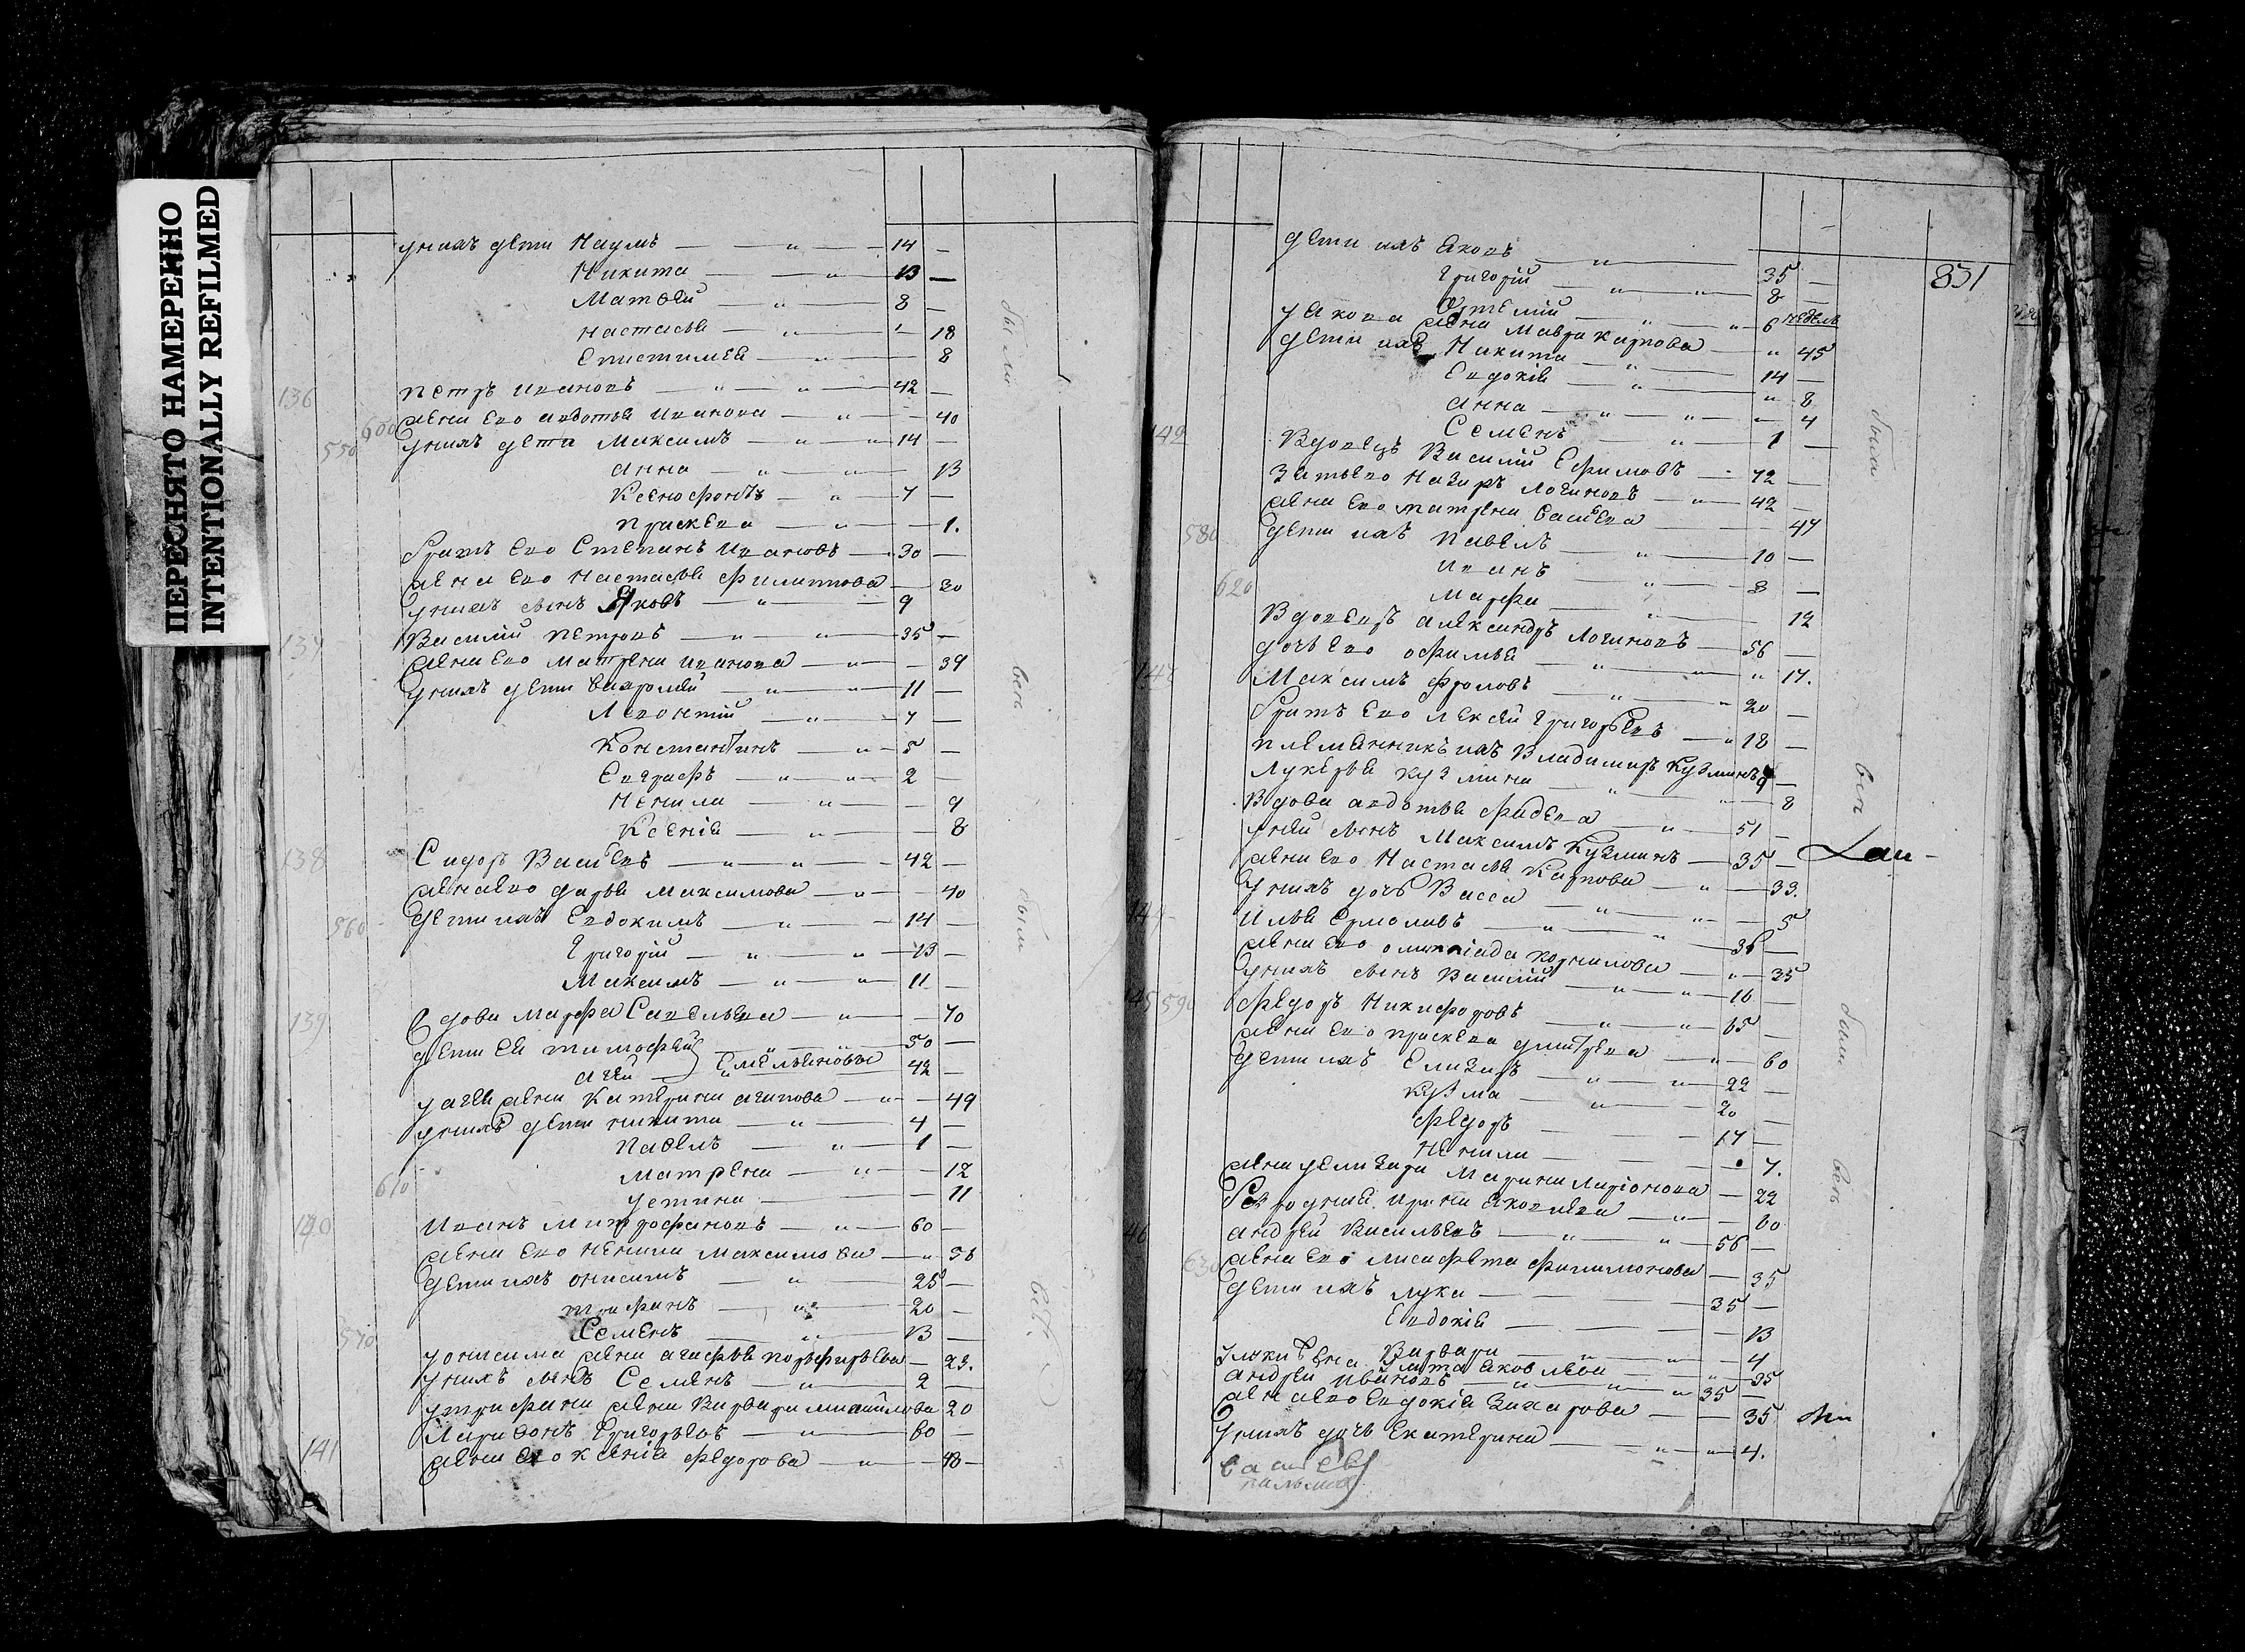 ПЕРЕСНЯТО НАМЕРЕННО
INTENTIONALLY REFILMED
унихъ дети Наумъ — " — 14 —
Никита — " — 13 —
Матвей — " — 8 —
Настасья — " — " 18
8
136 Петръ Ивановъ — " — " — 42 —
600 жена Ево Авдотья Иванова — " — 40
550 унихъ дети Максимъ — " — " 14 —
Анна — " — " — 13
Ксенофонтъ — " — 7 —
Прасковя — " — 1.
братъ Ево Степанъ Ивановъ — 30 —
жена Ево Настасья Филипова — 30
унихъ сынъ Яковъ — " — 9
137 Василий Петровъ — " — " — 35 —
жена Ево Матрена Иванова — " — 39
унихъ дети Варфомей — " — " 11 —
Леонтий — " — 7 —
Константинъ — " 5 —
Евграфъ — " — " 2 —
Ненила — " — 9
Ксения — " — 8
138 Сидоръ Васильевъ — " — " — 42 —
жена Ево Дарья Максимова — " — 40
560 дети ихъ Евдокимъ — " — 14 —
Григорий — " — " 13 —
Максимъ — " — " 11 —
139 Вдова Марфа Савельева — " — 70
дети Ея Тимофей — " — " 50 —
Агей — " Емельяновы 42 —
у Агея жена Катерина Агапова — " — 49
унихъ дети Никита — " — 4 —
Павелъ — " — 1 —
Матрена — " — 12
610 Устина — 11
140 Иванъ Митрофановъ — " — 60 —
жена Ево Ненила Максимова — " 56
дети ихъ Онисимъ — " — 25 —
Трифанъ — " — 20 —
570 Семенъ — " — 13 —
у Онисима жена Агафья Порфирьева — 23.
унихъ сынъ Семенъ — " — 2 —
у Трифана жена Варвара Михайлова 20
141 Ларивонъ Григорьевъ — " — 60 —
жена Ево Ксения Федорова — " — 48 —
831
дети ихъ Яковъ — " — 35 —
Григорий — " — " — 8 —
Артемий — " — " 6 недель
у Якова жена Мавра Карпова — " 45
дети ихъ Никита — " — 14 —
Евдокия — " — " 8
Анна — " — " — 4
Семенъ — " — 1 —
142 Вдовецъ Василий Ефимовъ — 72 —
Зять Ево Назаръ Логиновъ — " 42 —
жена Ево Матрена Васильева — 47
580 дети ихъ Павелъ — " — 10 —
Иванъ — " — 8 —
620 Марфа — " — 12
Вдовецъ Александръ Логиновъ — 56 —
дочь Ево Офимья — " — " 17.
Максимъ Фроловъ — " — " 20 —
братъ Ево Лексей Григорьевъ — " 18 —
племянникъ ихъ Владимиръ Кузминъ 9 —
Лукерья Кузмина — " — " — 8
Вдова Авдотья Фадеева — " — 51 —
уней сынъ Максимъ Кузминъ — 35 —
жена Ево Настасья Карпова — " — 33.
унихъ дочь Васса — " — " — 5
Илья Ермолавъ — " — " 36 —
жена Ево Олимпиада Корнилова — " — 35
унихъ сынъ Василий — " — " — 16 —
145 590 Федоръ Никифоровъ — " — " 65 —
жена Ево Прасковя Дмитрева — " — 60
дети ихъ Елизаръ — " — " 22 —
Кузма — " — 20 —
Федоръ — 17 —
Ненила — " 7.
жена у Елизара Марина Ларионова — 22
Ирина Яковлева — " — 60
46 Андрей Васильевъ — " — " 56 —
630 жена Ево Лисафета Филимонова — 35
дети ихъ Лука — 35 —
Евдокия — 13
Варвара — " — 4
у Луки жена Улита Яковлева — " 35
Андрей Ивановъ — " — " 35 —
жена Ево Евдокия Захарова — 35
унихъ дочь Екатерина — " — " 4.